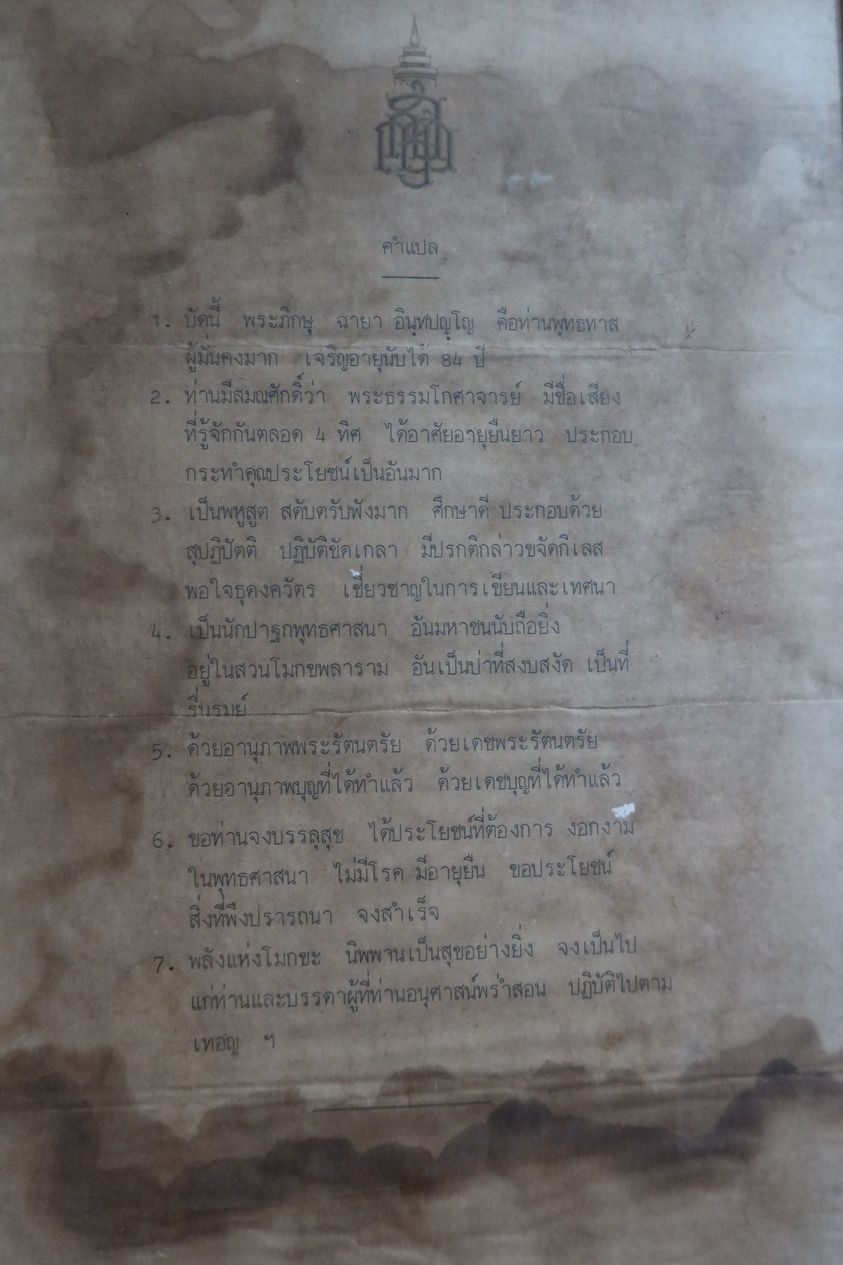 คำแปล
1. บัดนี้ พระภิกษุ ฉายา อินฺทปญฺโญ คือท่านพุทธทาส
ผู้มั่นคงมาก เจริญอายุนับได้ 84 ปี
2. ท่านมีสมณศักดิ์ว่า พระธรรมโกศาจารย์ มีชื่อเสียง
ที่รู้จักกันตลอด 4 ทิศ ได้อาศัยอายุยืนยาว ประกอบ
กระทำคุณประโยชน์เป็นอันมาก
3. เป็นพหูสูต สดับตรับฟังมาก ศึกษาดี ประกอบด้วย
สุปฏิปัตติ ปฏิบัติขัดเกลา มีปรกติกล่าวขจัดกิเลส
พอใจธุดงควัตร เชี่ยวชาญในการเขียนและเทศนา
4. เป็นนักปาฐกพุทธศาสนา อันมหาชนนับถือยิ่ง
อยู่ในสวนโมกขพลาราม อันเป็นป่าที่สงบสงัด เป็นที่
รื่นรมย์
5. ด้วยอานุภาพพระรัตนตรัย ด้วยเดชพระรัตนตรัย
ด้วยอานุภาพบุญที่ได้ทำแล้ว ด้วยเดชบุญที่ได้ทำแล้ว
6. ขอท่านจงบรรลุสุข ได้ประโยชน์ที่ต้องการ งอกงาม
ในพุทธศาสนา ไม่มีโรค มีอายุยืน ขอประโยชน์
สิ่งที่พึงปรารถนา จงสำเร็จ
7. พลังแห่งโมกขะ นิพพานเป็นสุขอย่างยิ่ง จงเป็นไป
แก่ท่านและบรรดาผู้ที่ท่านอนุศาสน์พร่ำสอน ปฏิบัติไปตาม
เทอญ ฯ